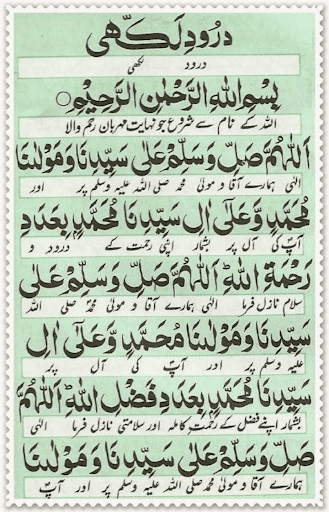 درود لکھی
درود لکھی
بِسْمِ اللهِ الرَّحْمٰنِ الرَّحِيْمِ
اللہ کے نام سے شروع جو نہایت مہربان رحم والا
اَللّٰهُمَّ صَلِّ وَسَلِّمْ عَلٰى سَيِّدِنَا وَمَوْلٰنَا
الٰہی ہمارے آقا و مولیٰ محمد صلی اللہ علیہ وسلم پر اور
مُحَمَّدٍ وَّعَلٰٓى اٰلِ سَيِّدِنَا مُحَمَّدٍ بِعَدَدِ
آپؐ کی آل پر بشمار اپنی رحمت کے درود و
رَحْمَةِ اللهِ اَللّٰهُمَّ صَلِّ وَسَلِّمْ عَلٰى
سلام نازل فرما الٰہی ہمارے آقا و مولیٰ محمد صلی اللہ
سَيِّدِنَا وَمَوْلٰنَا مُحَمَّدٍ وَّعَلٰٓى اٰلِ
علیہ وسلم پر اور آپؐ کی آل پر
سَيِّدِنَا مُحَمَّدٍ بِعَدَدِ فَضْلِ اللهِ اَللّٰهُمَّ
بشمار اپنے فضل کے رحمت کاملہ اور سلامتی نازل فرما الٰہی
صَلِّ وَسَلِّمْ عَلٰى سَيِّدِنَا وَمَوْلٰنَا
ہمارے آقا و مولیٰ محمد صلی اللہ علیہ وسلم پر اور آپؐ